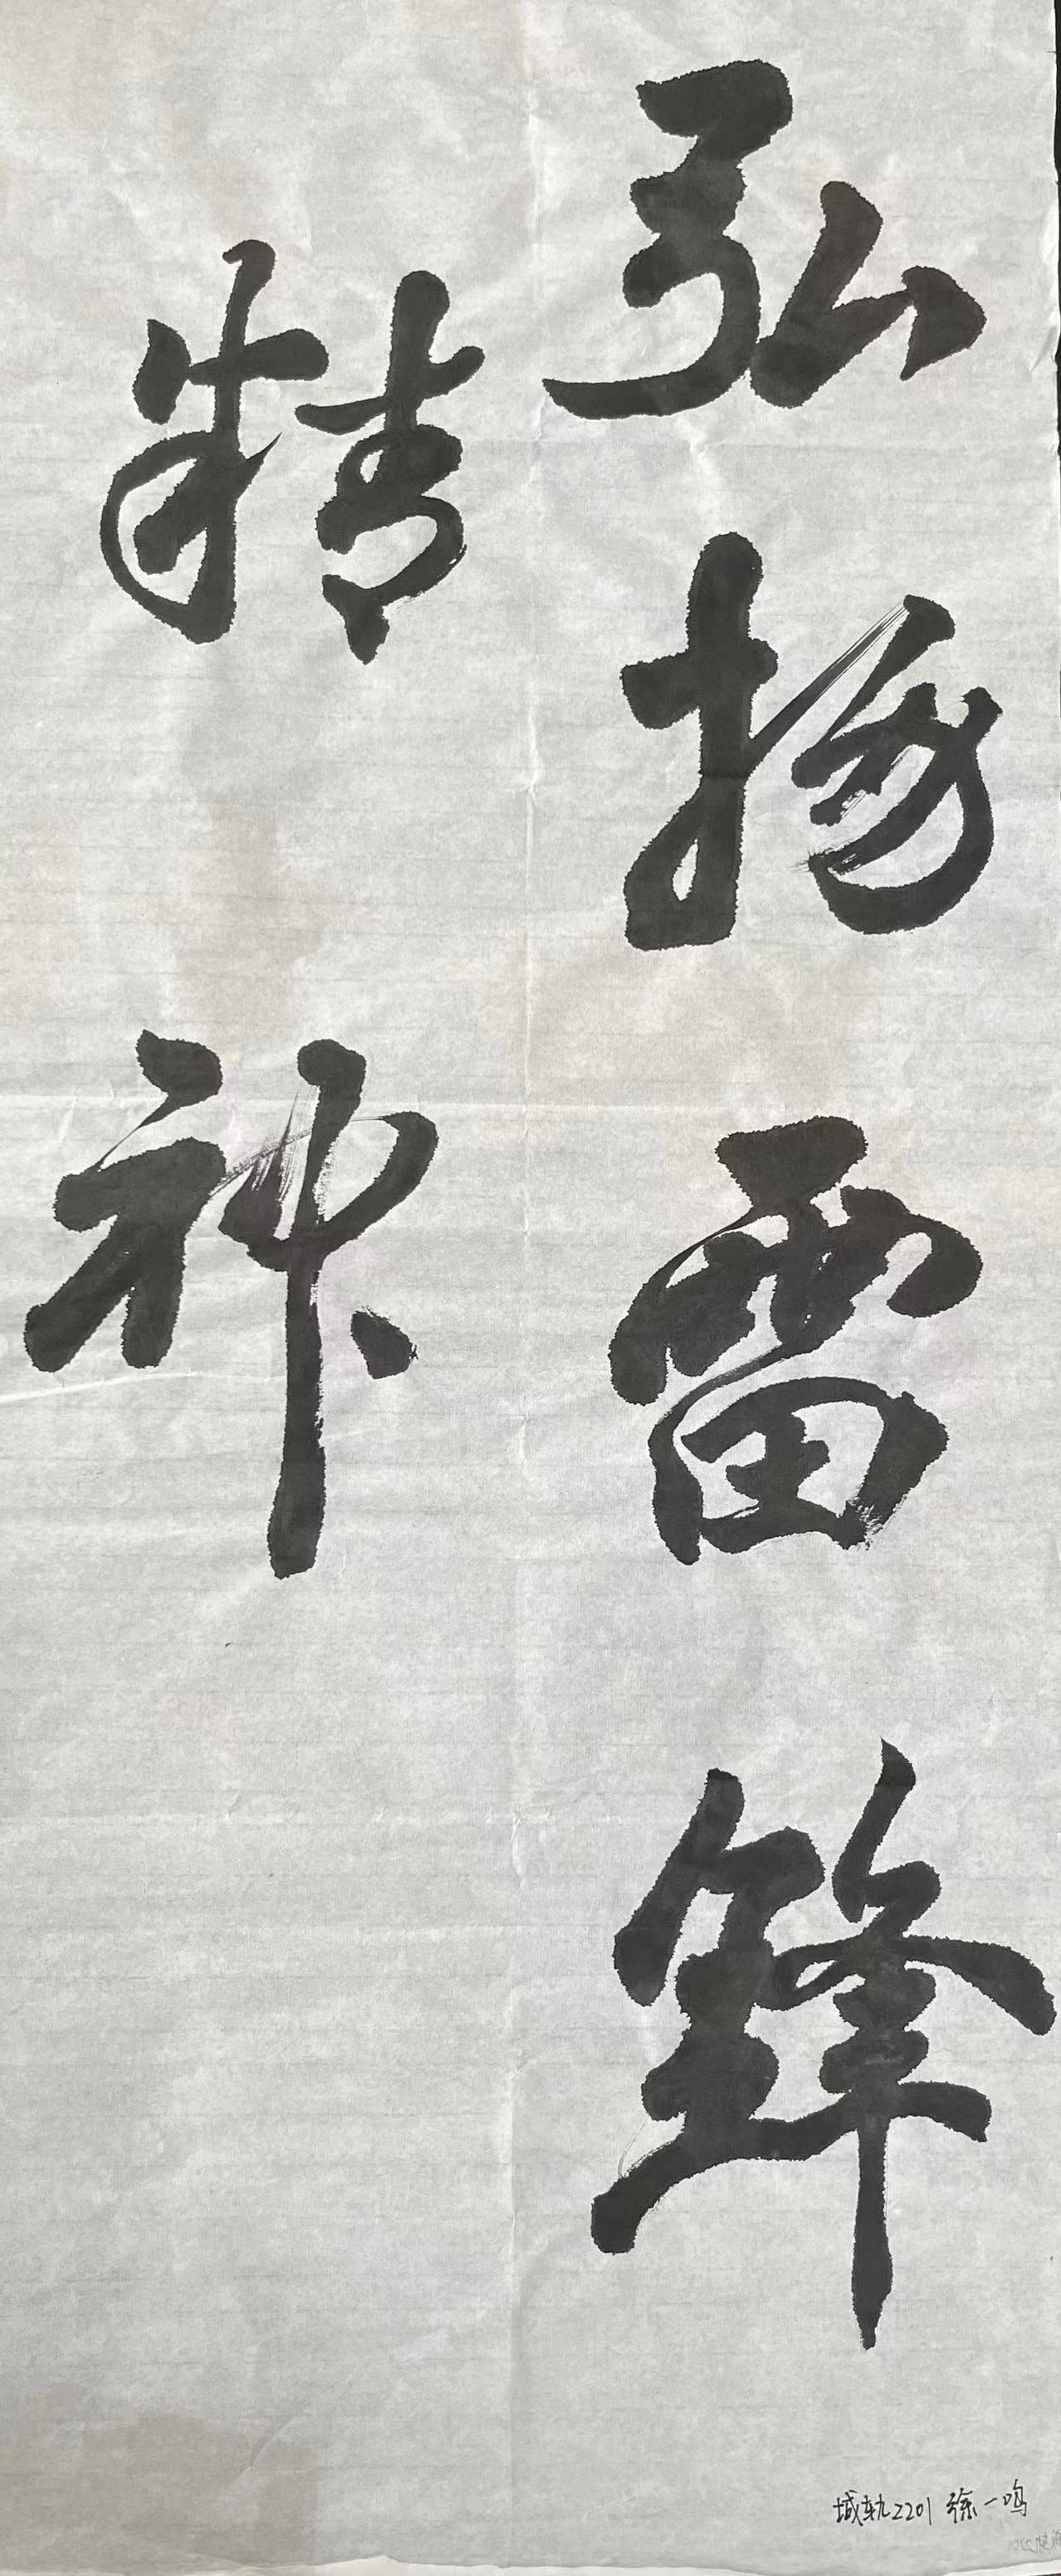 弘扬雷锋
精神
城轨2201 徐一鸣